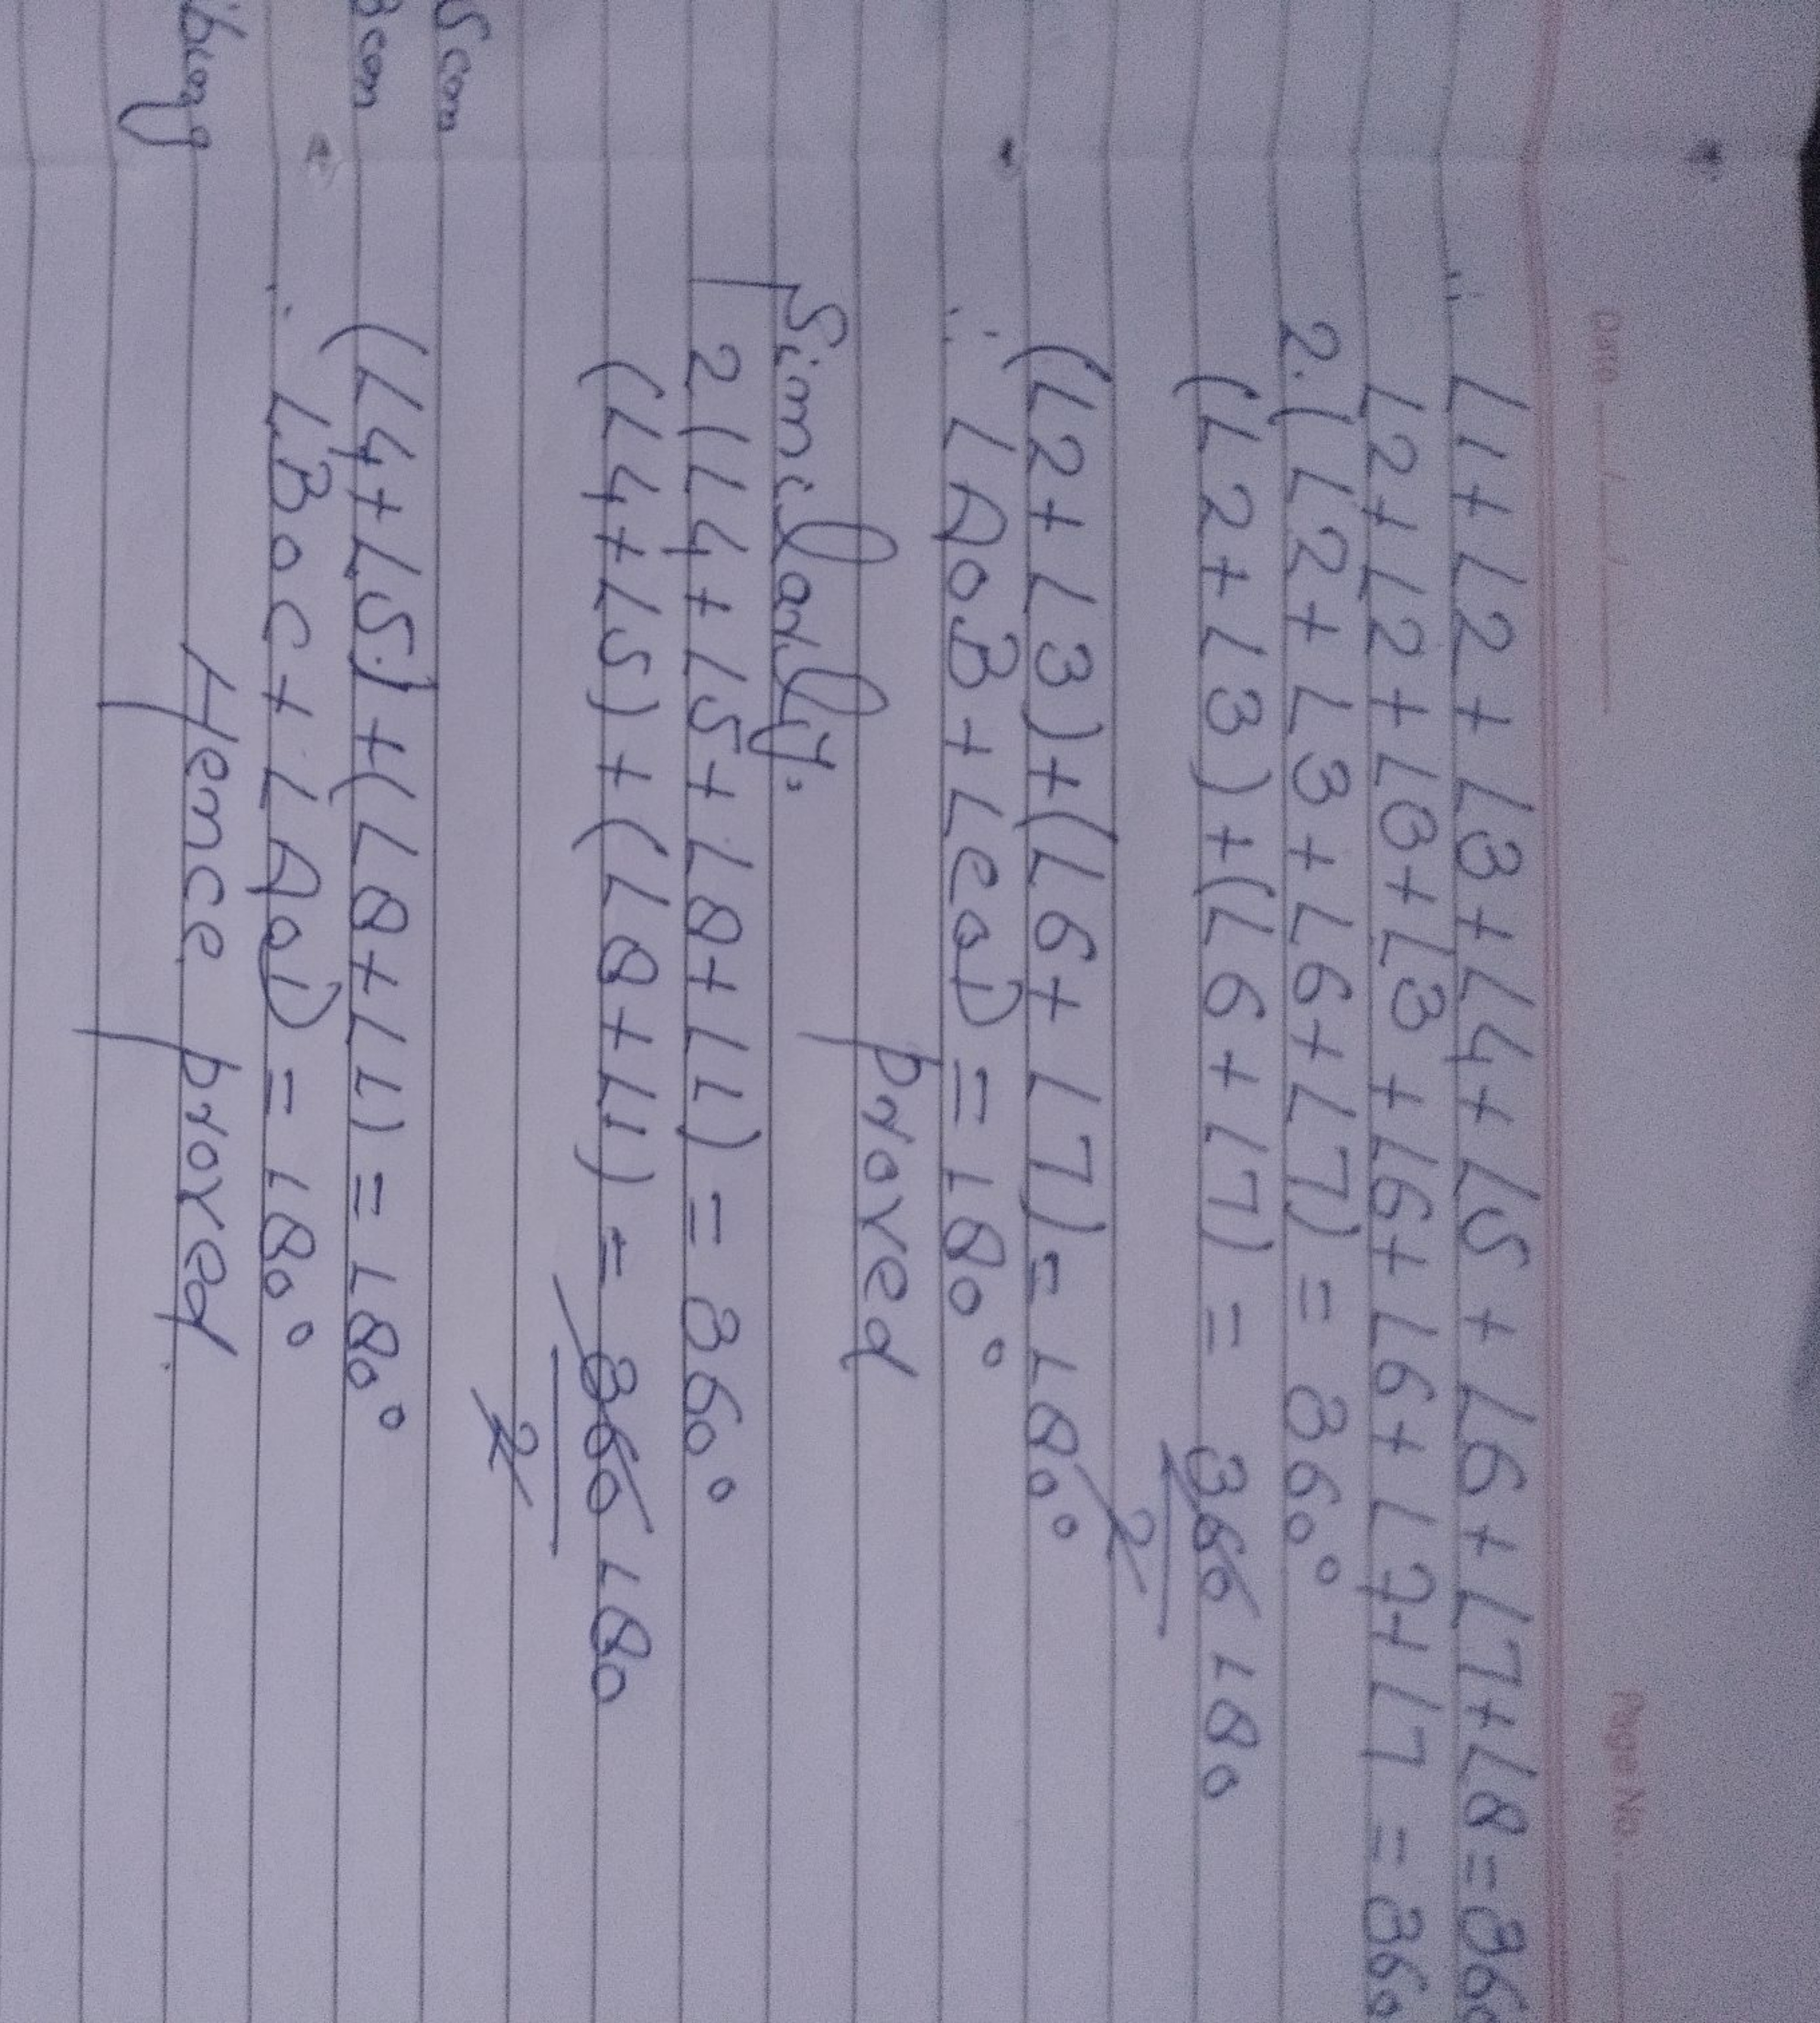 Date
Page No.
∴ ∠1+∠2+∠3+∠4+∠5+∠6+∠7+∠8=360
∠2+∠2+∠3+∠3+∠6+∠6+∠7+∠7=360
2.(∠2+∠3+∠6+∠7)=360°
(∠2+∠3)+(∠6+∠7)=360 180
2
(∠2+∠3)+(∠6+∠7)=180°
∴ ∠AOB+∠COD=180°
proved
Similarly,
2(∠4+∠5+∠8+∠1)=360°
(∠4+∠5)+(∠8+∠1)=360 180
2
5 cm
3 cm
(∠4+∠5)+(∠8+∠1)=180°
∴ ∠BOC+∠AOD=180°
Hence proved.